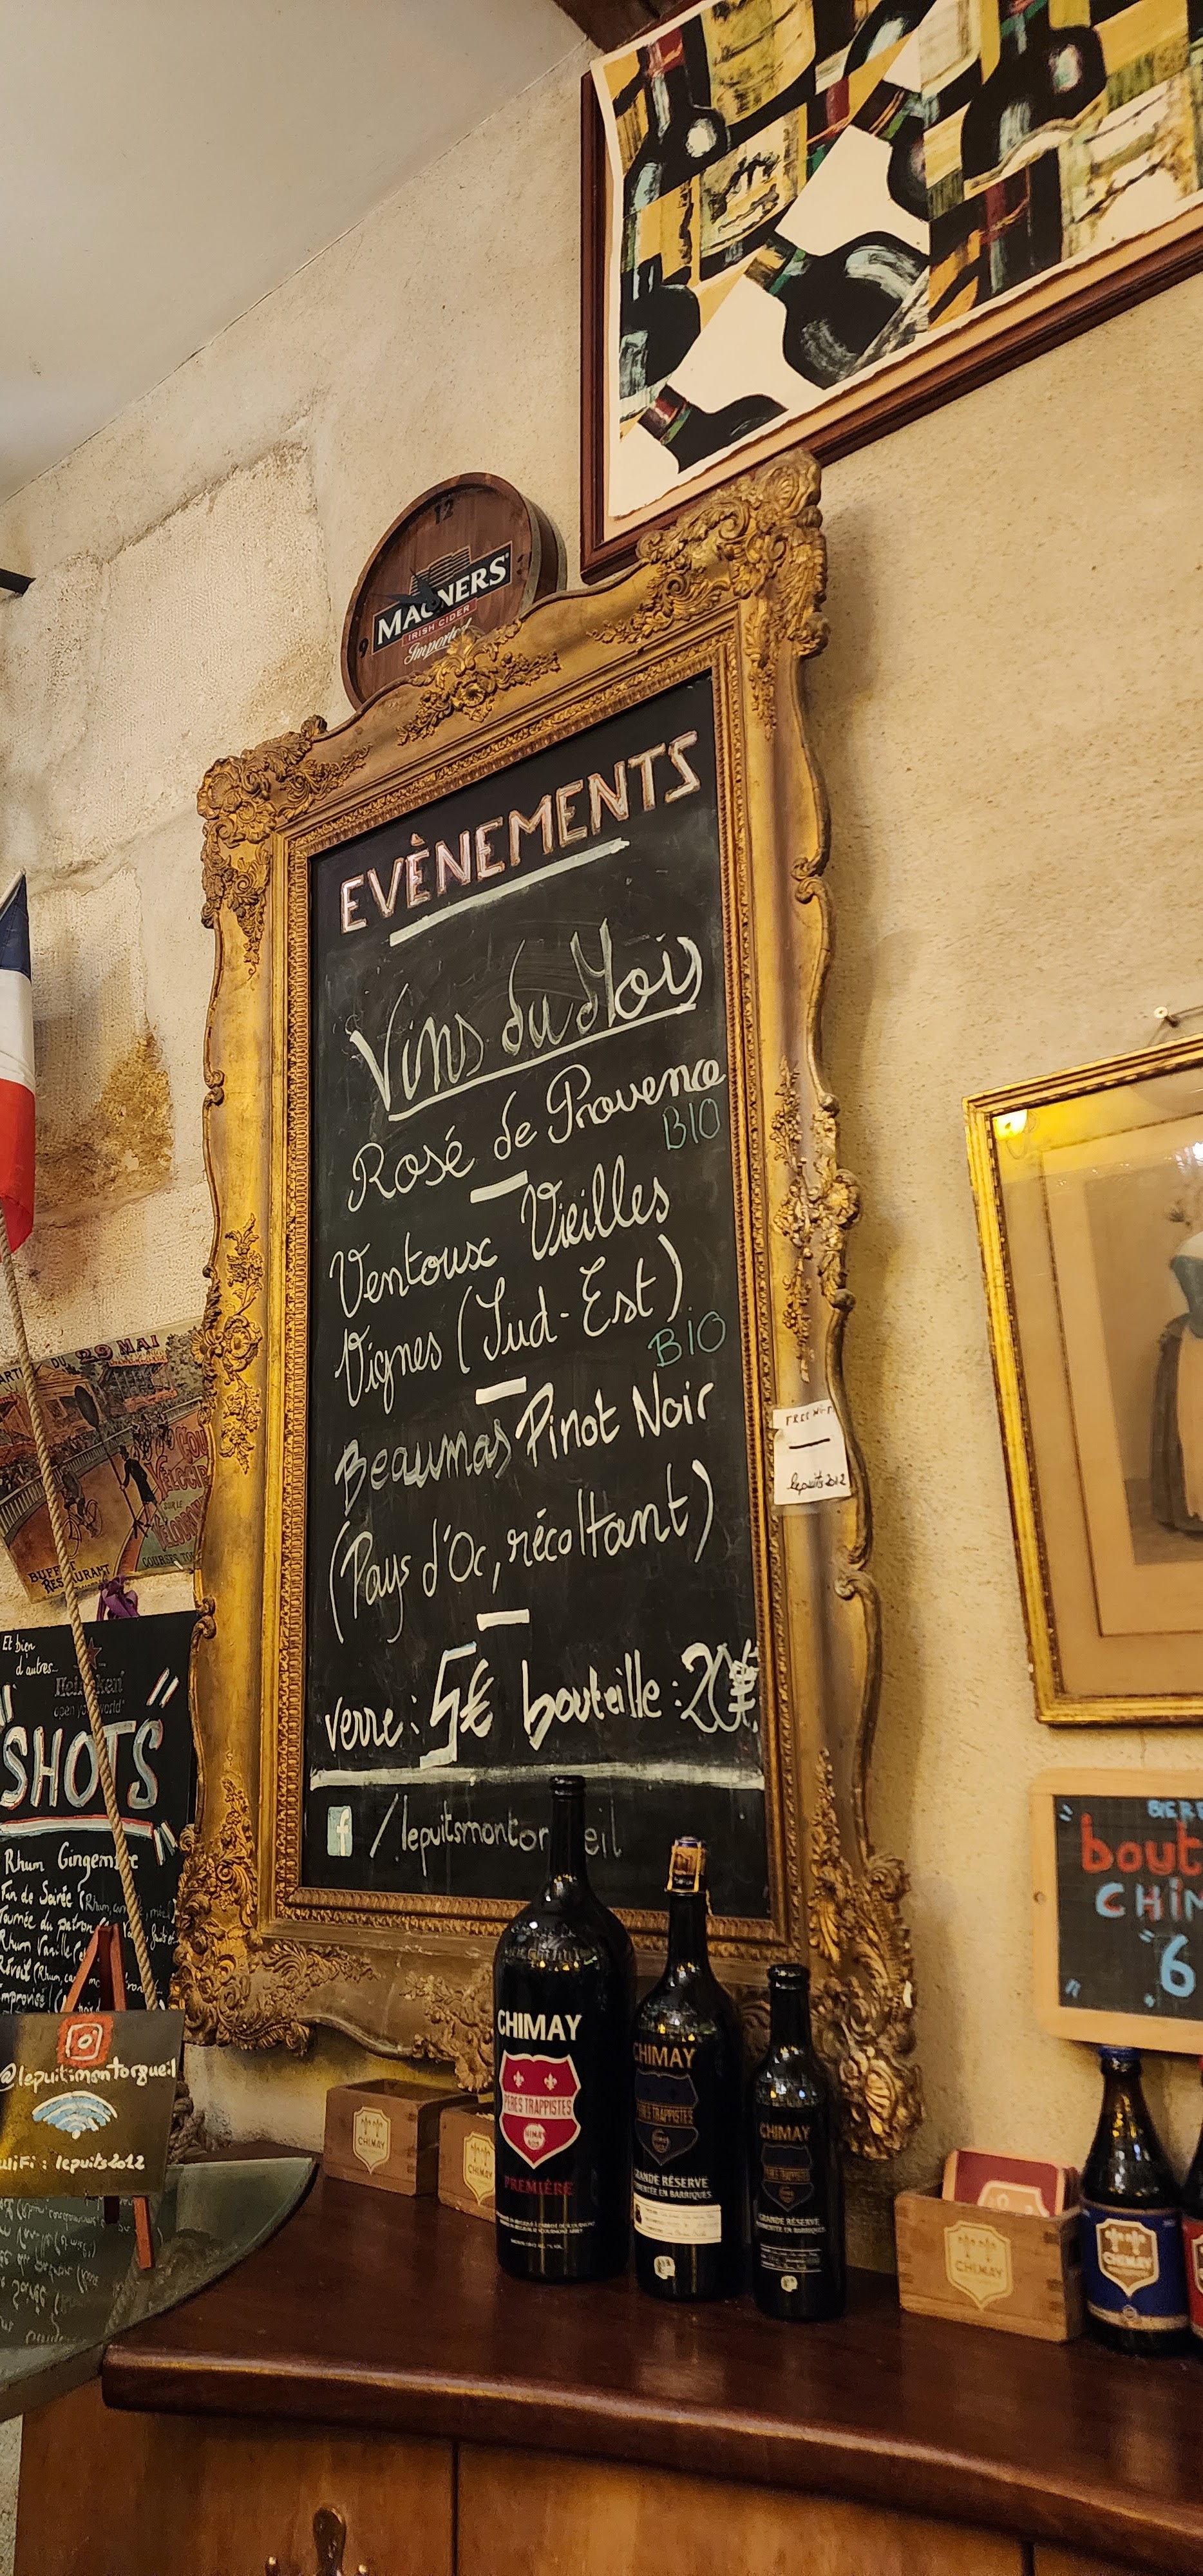 12
9
MAGNERS
IRISH CIDER
Imported
EVÈNEMENTS
Vins du Mois
Rosé de Provence
BIO
Ventoux Vieilles
Vignes (Sud-Est)
BIO
Beaumas Pinot Noir
(Pays d'Oc, récoltant)
verre: 5€ bouteille: 20€
f /.lepuitsmontor eil
lepuits2012
29 MAI
BUFFET
RESTAURANT
Et bien
d'autres...
Heineken
open your world
"SHOTS"
Rhum Gingembre
Tournée du patron
Rhum Vanille
Réveil (Rhum,
@lepuitsmontorgueil
WiFi : lepuits2012
CHIMAY
PÈRES TRAPPISTES
PREMIÈRE
CHIMAY
PÈRES TRAPPISTES
GRANDE RÉSERVE
FERMENTÉE EN BARRIQUES
CHIMAY
GRANDE RÉSERVE
FERMENTÉE EN BARRIQUES
CHIMAY
CHIMAY
CHIMAY
CHIMAY
bout
CHIM
"6